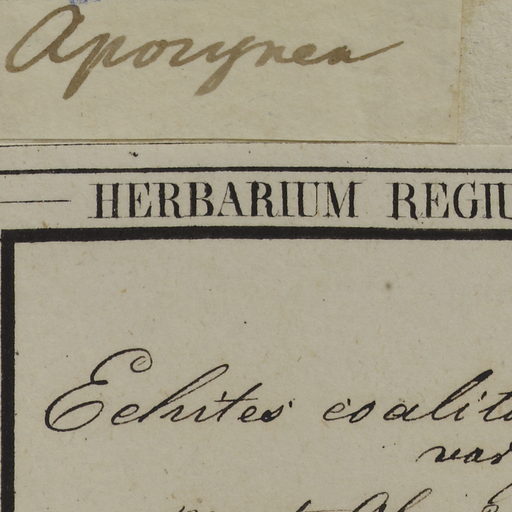 Apocynea
HERBARIUM REGIU
Echites coalit
var